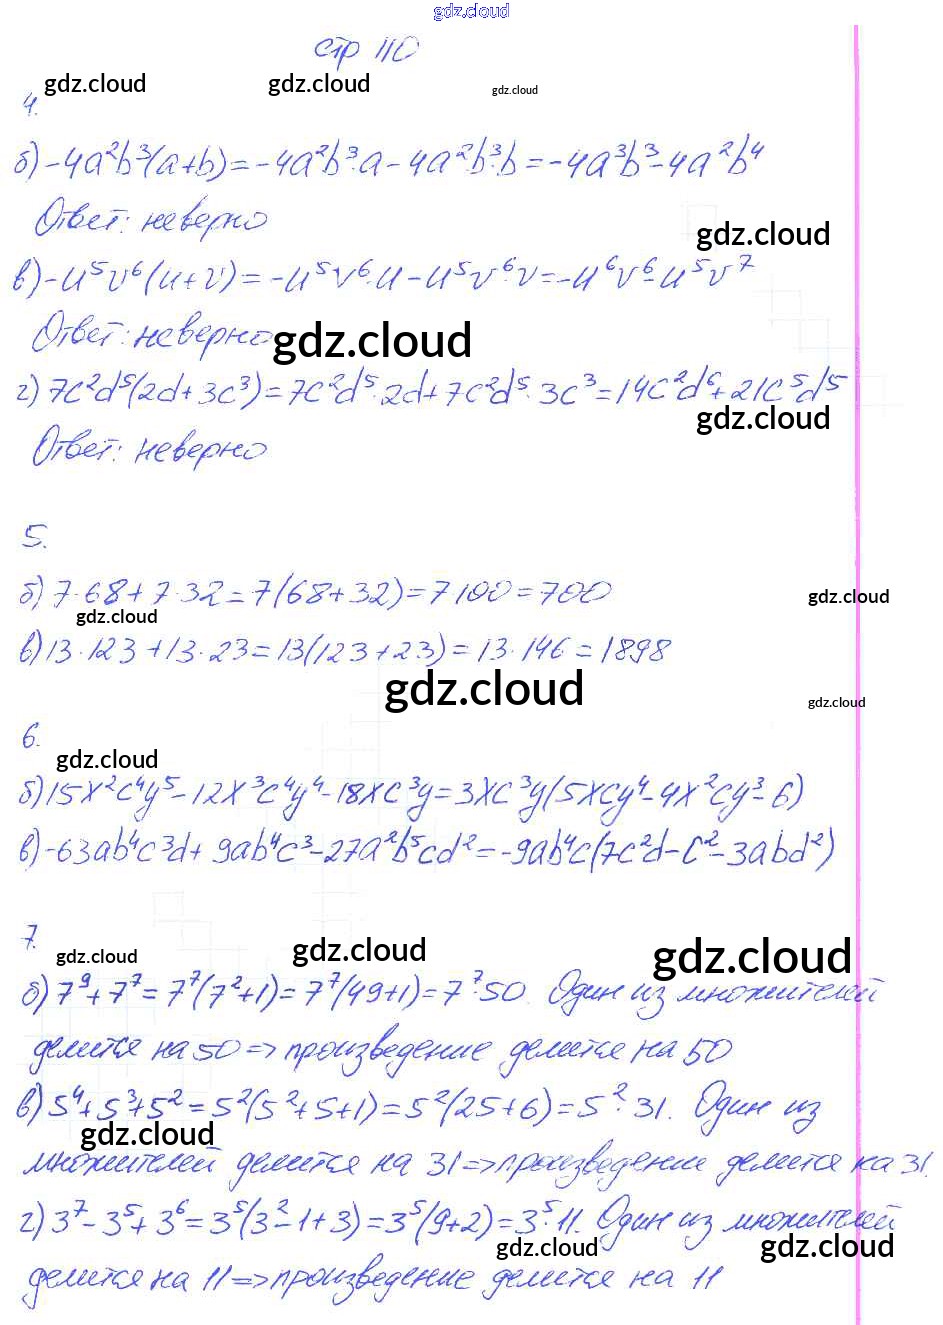 gdz.cloud
стр 110
gdz.cloud gdz.cloud gdz.cloud
4.
б) -4a²b³(a+b) = -4a²b³·a - 4a²·b³·b = -4a³b³ - 4a²b⁴
Ответ: неверно
gdz.cloud
в) -u⁵v⁶(u+v) = -u⁵v⁶·u - u⁵v⁶·v = -u⁶v⁶ - u⁵v⁷
Ответ: неверно
gdz.cloud
г) 7c²d⁵(2d+3c³) = 7c²d⁵·2d + 7c²d⁵·3c³ = 14c²d⁶ + 21c⁵d⁵
gdz.cloud
Ответ: неверно
5.
б) 7·68 + 7·32 = 7(68+32) = 7·100 = 700
gdz.cloud
gdz.cloud
в) 13·123 + 13·23 = 13(123+23) = 13·146 = 1898
gdz.cloud
gdz.cloud
6.
gdz.cloud
б) 15x²c⁴y⁵ - 12x³c⁴y⁴ - 18xc³y = 3xc³y(5xcy⁴ - 4x²cy³ - 6)
в) -63ab⁴c³d + 9ab⁴c³ - 27a²b⁵cd² = -9ab⁴c(7c²d - c² - 3abd²)
7.
gdz.cloud gdz.cloud gdz.cloud
б) 7⁹ + 7⁷ = 7⁷(7²+1) = 7⁷(49+1) = 7⁷·50. Один из множителей
делится на 50 => произведение делится на 50
в) 5⁴ + 5³ + 5² = 5²(5²+5+1) = 5²(25+6) = 5²·31. Один из
gdz.cloud
множителей делится на 31 => произведение делится на 31.
г) 3⁷ - 3⁵ + 3⁶ = 3⁵(3² - 1 + 3) = 3⁵(9+2) = 3⁵·11. Один из множителей
gdz.cloud gdz.cloud
делится на 11 => произведение делится на 11